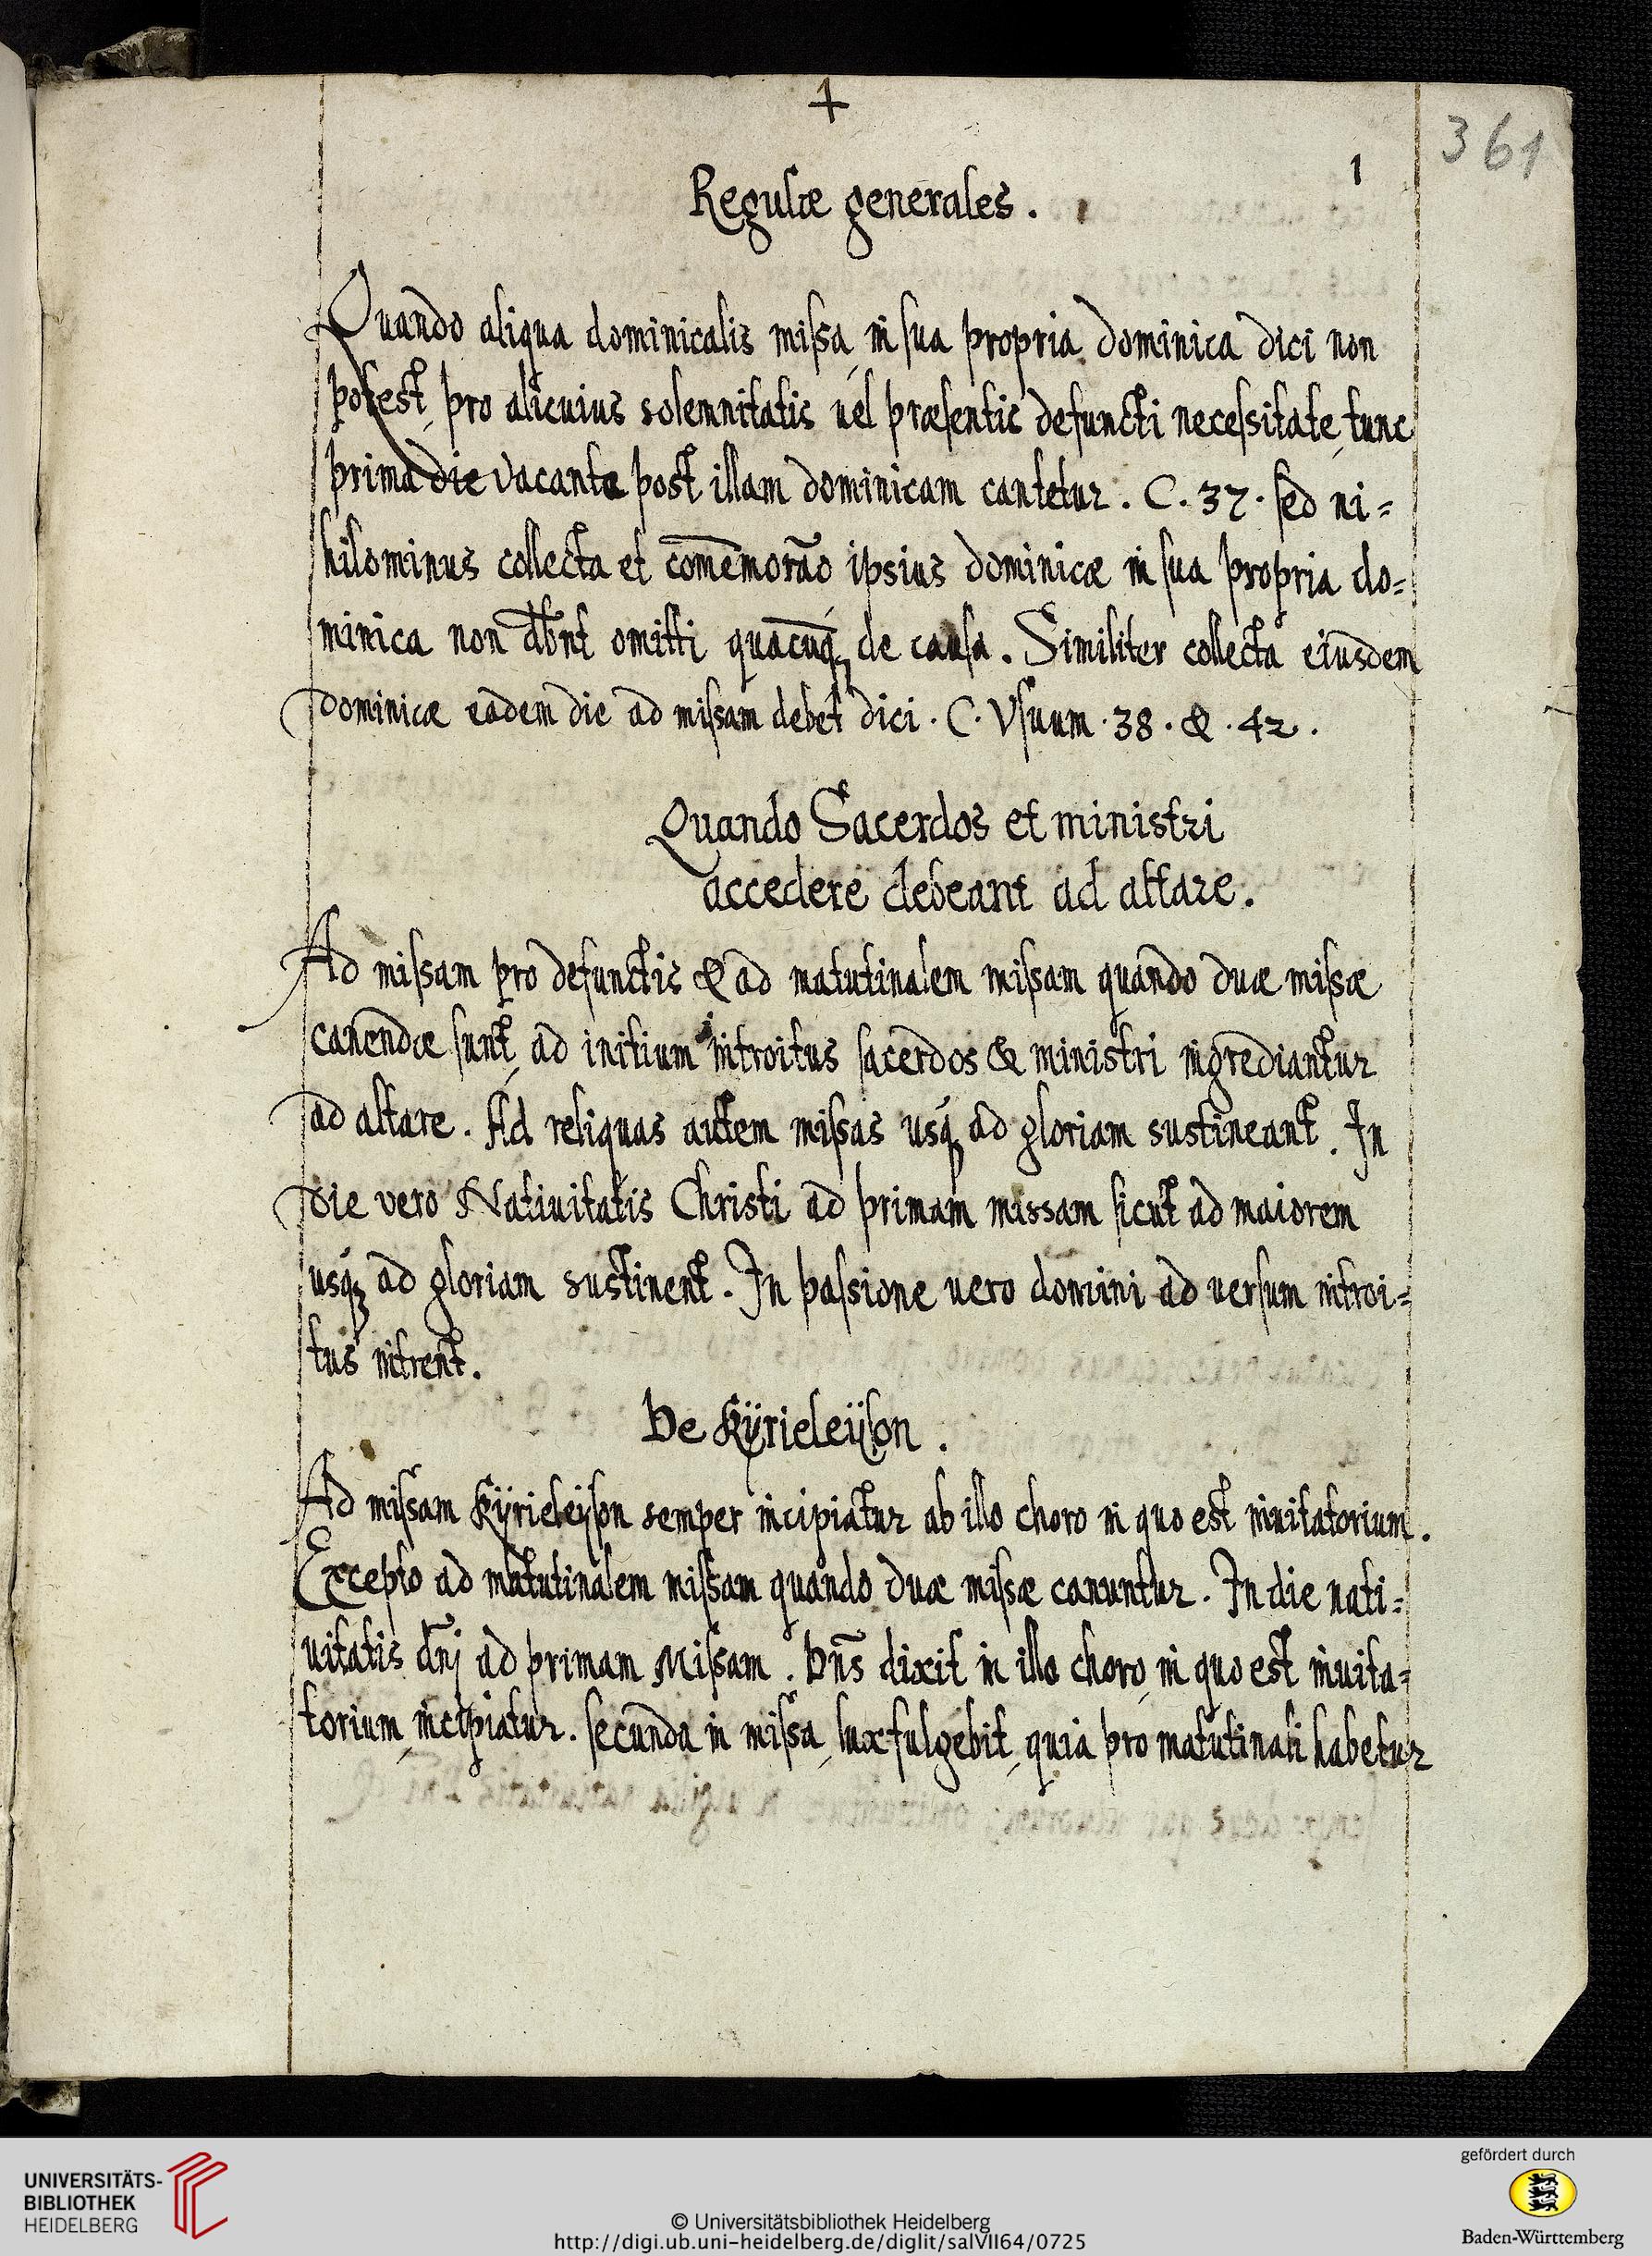 +
361
1
Regulæ generales.
Quando aliqua dominicalis missa, in sua propria dominica dici non
potest, pro alicuius solemnitatis uel præsentis defuncti necessitate, tunc
prima die vacante post illam dominicam cantetur. C. 37. sed ni=
hilominus collecta et com̄emorão ipsius dominicæ in sua propria do=
minica non dbnt omitti quacūq; de causa. Similiter collecta eiusdem
dominicæ eadem die ad missam debet dici. C. Vsuum. 38. & . 42.
Quando Sacerdos et ministri
accedere debeant ad altare.
Ad missam pro defunctis & ad matutinalem missam quando duæ missæ
canendæ sunt, ad initium introitus sacerdos & ministri ingrediantur
ad altare. Ad reliquas autem missas usq; ad gloriam sustineant. In
die vero Natiuitatis Christi ad primam missam sicut ad maiorem
usq; ad gloriam sustinent. In passione uero domini ad uersum introi=
tus intrent.
De Kÿrieleÿson.
Ad missam Kÿrieleÿson semper incipiatur ab illo choro in quo est inuitatorium.
Excepto ad matutinalem missam quando duæ missæ canuntur. In die nati=
uitatis dñi ad primam Missam. Dñs dixit in illo choro, in quo est inuita=
torium, incipiatur. secunda in missa, lux fulgebit, quia pro matutinali habetur
UNIVERSITÄTS-
BIBLIOTHEK
HEIDELBERG
© Universitätsbibliothek Heidelberg
http://digi.ub.uni-heidelberg.de/diglit/salVII64/0725
gefördert durch
Baden-Württemberg